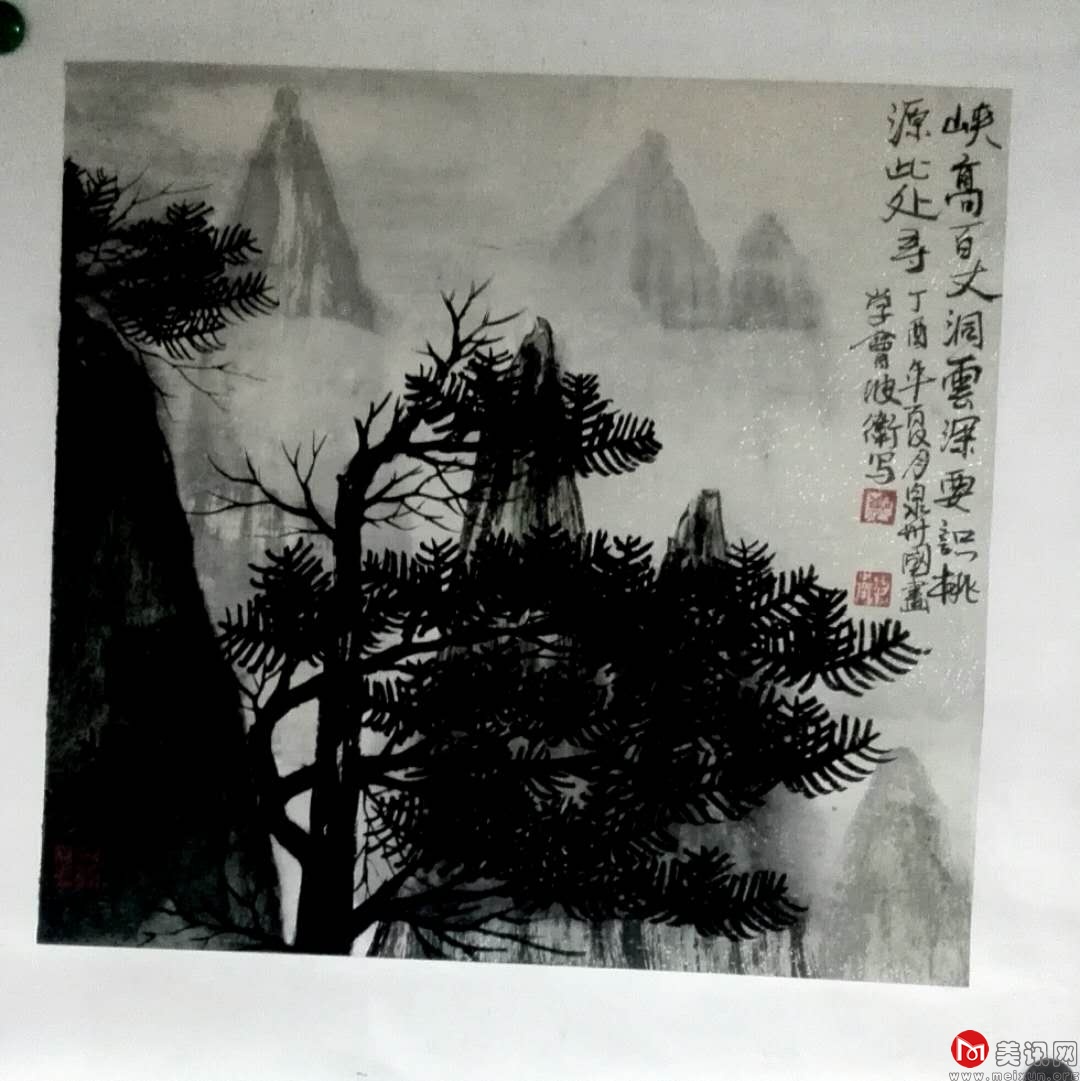 峡高百丈洞雲深要識桃
源此处寻丁酉年夏月泉州國畫
学曾波衛写
美讯网
www.meixun.org